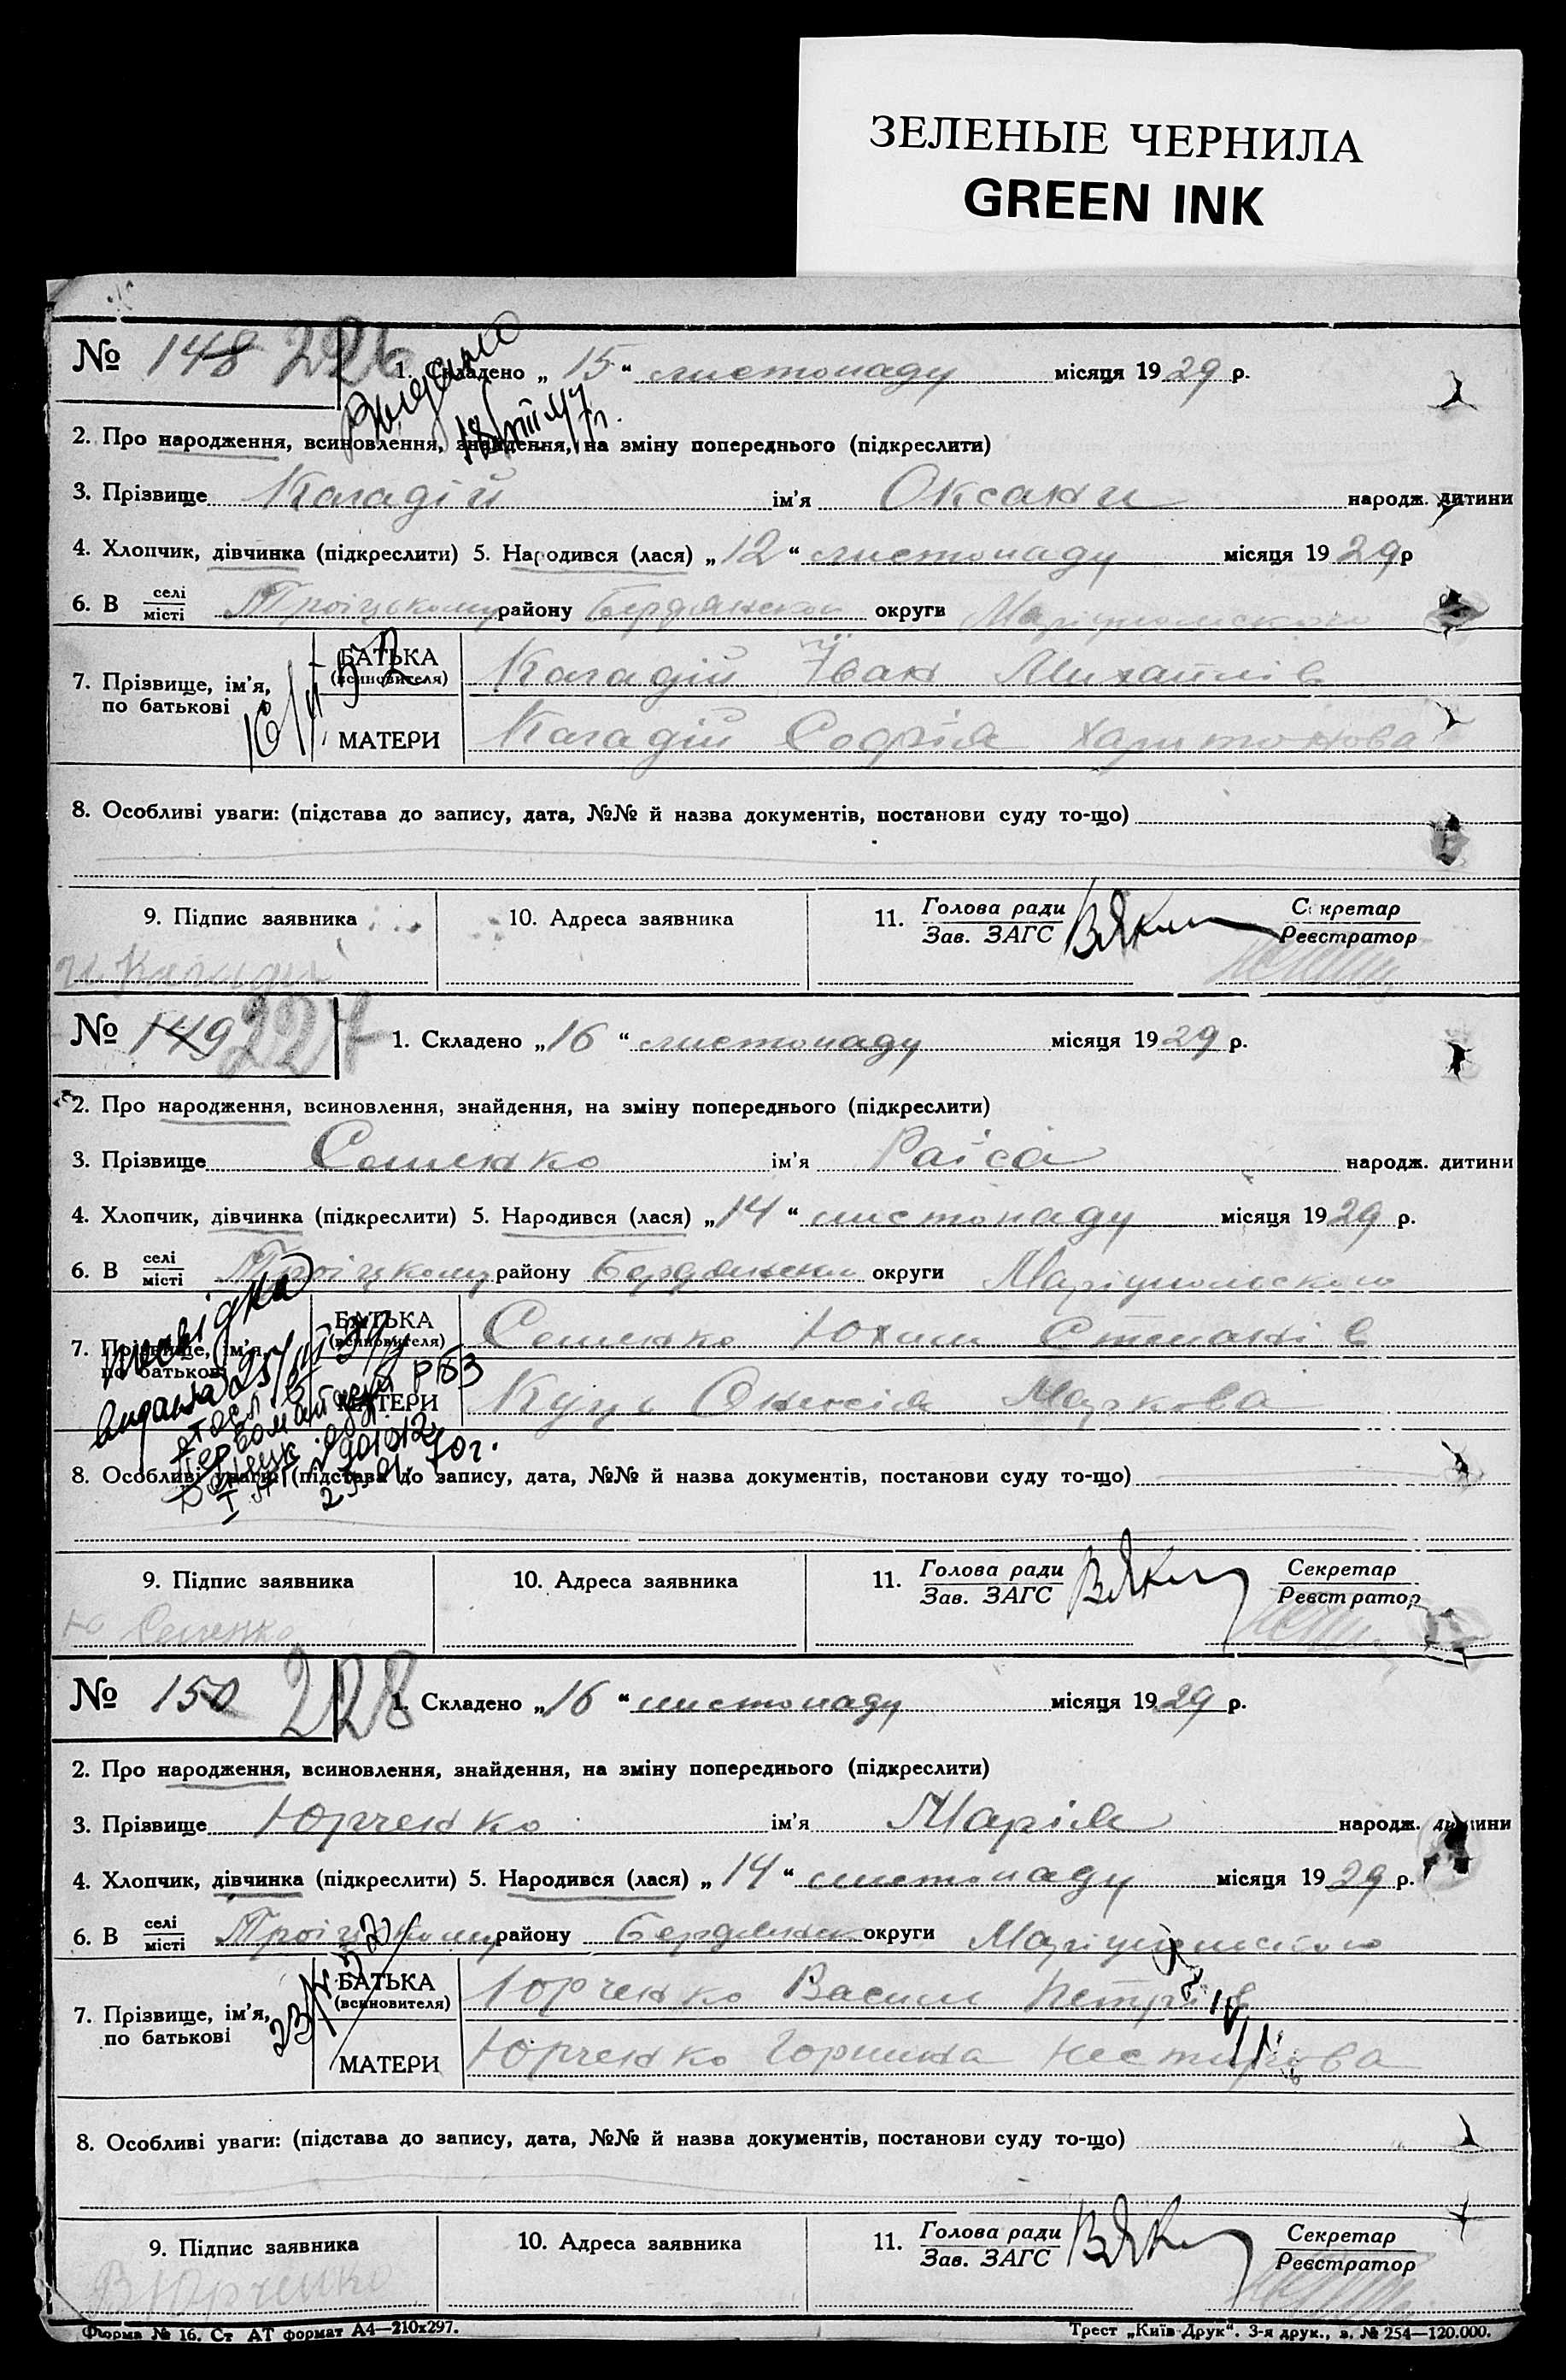 ЗЕЛЕНЫЕ ЧЕРНИЛА
GREEN INK
№ 148 226 1. Складено „15“ листопаду місяця 1929 р.
Видано
2. Про народження, всиновлення, знайдення, на зміну попереднього (підкреслити)
3. Прізвище Каладій ім’я Оксани народж. дитини
4. Хлопчик, дівчинка (підкреслити) 5. Народився (лася) „12“ листопаду місяця 1929 р
6. В селі
місті Троіцькому району Бердянском округи Маріупольского
7. Прізвище, ім’я,
по батькові
БАТЬКА
(всиновителя) Каладій Іван Михайлів
МАТЕРИ Каладій Софія Харитонова
8. Особливі уваги: (підстава до запису, дата, №№ й назва документів, постанови суду то-що)
9. Підпис заявника 10. Адреса заявника 11. Голова ради
Зав. ЗАГС
Секретар
Реєстратор
№ 149 227 1. Складено „16“ листопаду місяця 1929 р.
2. Про народження, всиновлення, знайдення, на зміну попереднього (підкреслити)
3. Прізвище Семенко ім’я Раїса народж. дитини
4. Хлопчик, дівчинка (підкреслити) 5. Народився (лася) „14“ листопаду місяця 1929 р.
6. В селі
місті Троіцкому району Бердянском округи Маріупольского
7. Прізвище, ім’я,
по батькові
БАТЬКА
(всиновителя) Семенко Юхим Степанів
МАТЕРИ Куць Маркова
8. Особливі уваги: (підстава до запису, дата, №№ й назва документів, постанови суду то-що)
9. Підпис заявника 10. Адреса заявника 11. Голова ради
Зав. ЗАГС
Секретар
Реєстратор
Ю Семенко
№ 150 228 1. Складено „16“ листопаду місяця 1929 р.
2. Про народження, всиновлення, знайдення, на зміну попереднього (підкреслити)
3. Прізвище Юрченко ім’я Марія народж. дитини
4. Хлопчик, дівчинка (підкреслити) 5. Народився (лася) „14“ листопаду місяця 1929 р.
6. В селі
місті Троіцькому району Бердянськ округи Маріупольского
7. Прізвище, ім’я,
по батькові
БАТЬКА
(всиновителя) Юрченко Васил Петрів
МАТЕРИ Юрченко Горпина Нестирова
8. Особливі уваги: (підстава до запису, дата, №№ й назва документів, постанови суду то-що)
9. Підпис заявника 10. Адреса заявника 11. Голова ради
Зав. ЗАГС
Секретар
Реєстратор
В Юрченко
Форма № 16. Ст АТ формат А4—210х297. Трест „Київ-Друк“. 3-я друк., з. № 254—120.000.